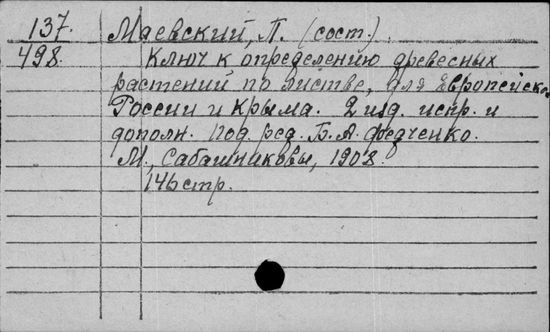 137. Маевский, П. (сост.).
498. Ключ к определению древесных
растений по листве, для Европейско.
России и Крыма. 2 изд. испр. и
дополн. Под ред. Б. А. Федченко.
М., Сабашниковы, 1908.
146 стр.